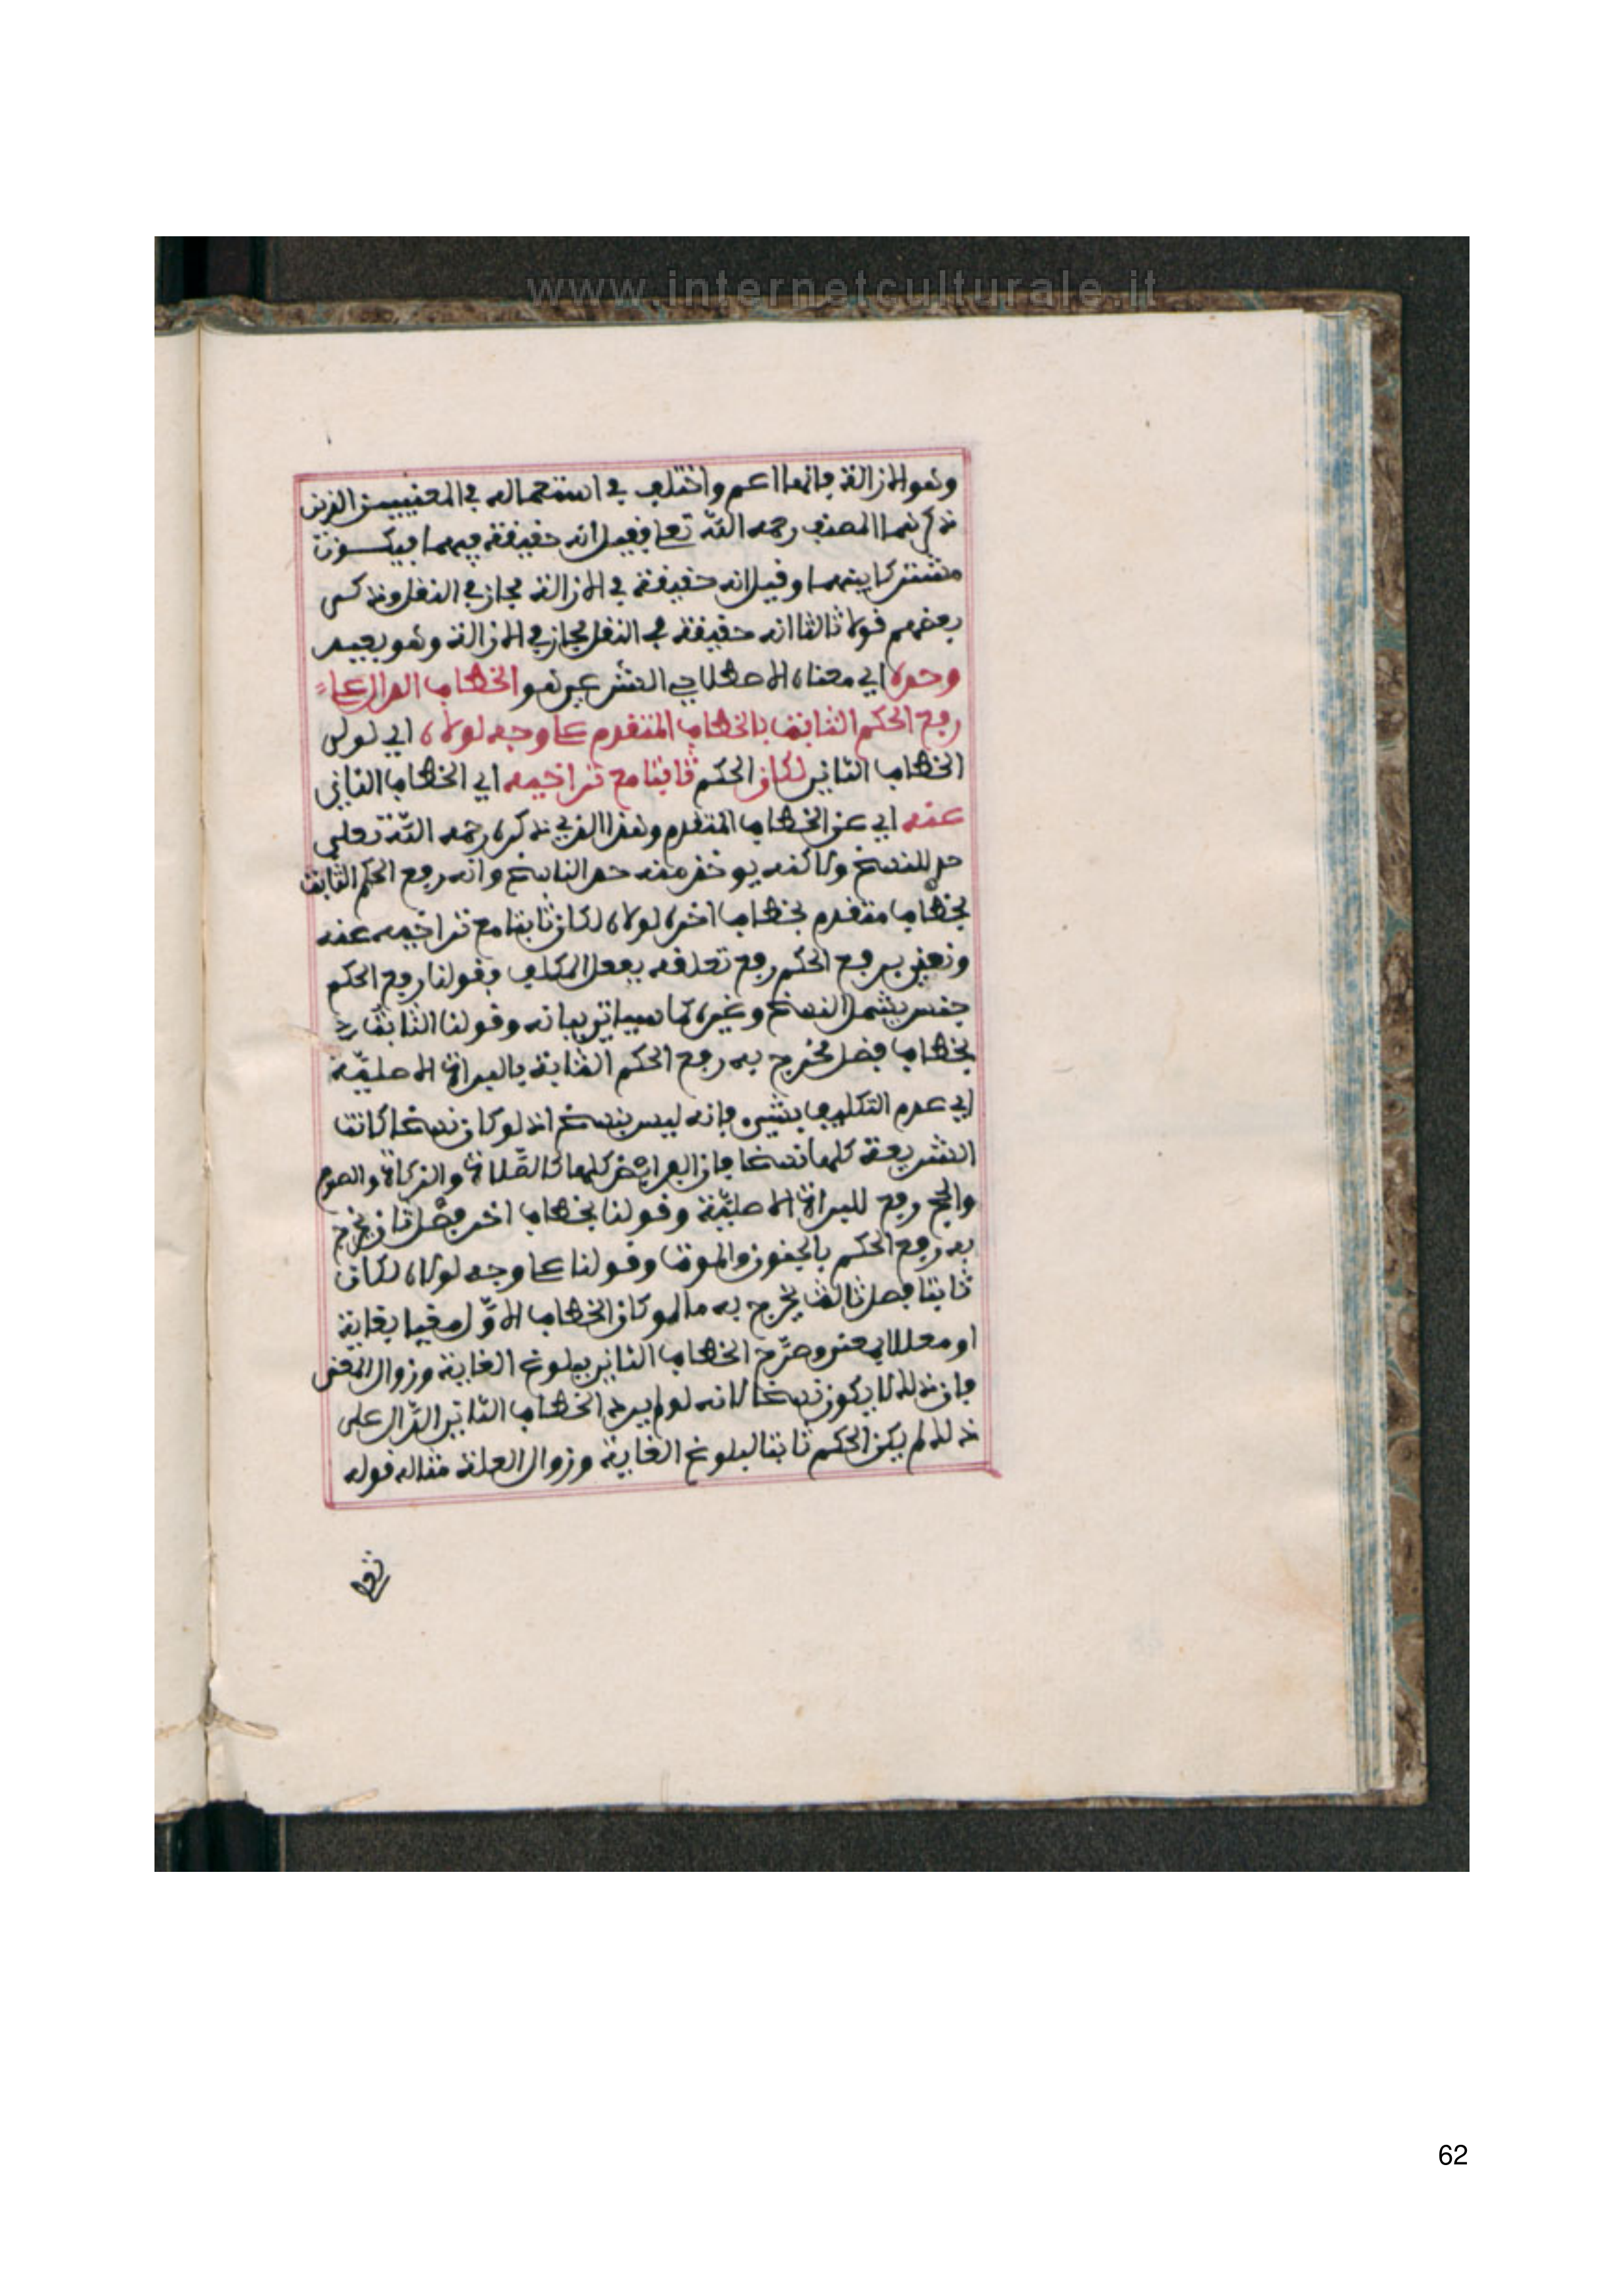 www.internetculturale.it
وهو الازالة فانها اعم واختلف في استعماله في المعنيين الذين
ذكرهما المصنف رحمه الله تعلى فقيل انه حقيقة فيهما فيكون
مشتركا بينهما وقيل انه حقيقة في الازالة مجاز في النقل وذكر
بعضهم قولا ثالثا انه حقيقة في النقل مجاز في الازالة وهو بعيد
وحده اي معناه الاصطلاحي الشرعي هو الخطاب الدال على
رفع الحكم الثابت بالخطاب المتقدم على وجه لولاه اي لولا
الخطاب الثاني لكان الحكم ثابتا مع تراخيه اي الخطاب الثاني
عنه اي عن الخطاب المتقدم وهذا الذي ذكره رحمه الله تعلى
حد للنسخ ولاكنه يوخذ منه حد الناسخ وانه رفع الحكم الثابت
بخطاب متقدم بخطاب اخر لولاه لكان ثابتا مع تراخيه عنه
ونعني برفع الحكم رفع تعلقه بفعل المكلف فقولنا رفع الحكم
جنس يشمل النسخ وغيره كما سياتي بيانه وقولنا الثابت
بخطاب فصل مخرج به رفع الحكم الثابت بالبراة الاصلية
اي عدم التكليف بشيء فانه ليس بنسخ اذ لو كان نسخا كانت
الشريعة كلها نسخا فان الفرائض كلها كالصلاة والزكاة والصوم
والحج رفع للبراة الاصلية وقولنا بخطاب اخر فصل ثان يخرج
به رفع الحكم بالجنون والموت وقولنا على وجه لولاه لكان
ثابتا فصل ثالث يخرج به ما لو كان الخطاب الاول مغيا بغاية
او معللا بمعنى وصرح الخطاب الثاني ببلوغ الغاية وزوال المعنى
فان ذلك لا يكون نسخا لانه لو لم يرد الخطاب الثاني الدال على
ذلك لم يكن الحكم ثابتا لبلوغ الغاية وزوال العلة مثاله قوله
تعلى
62